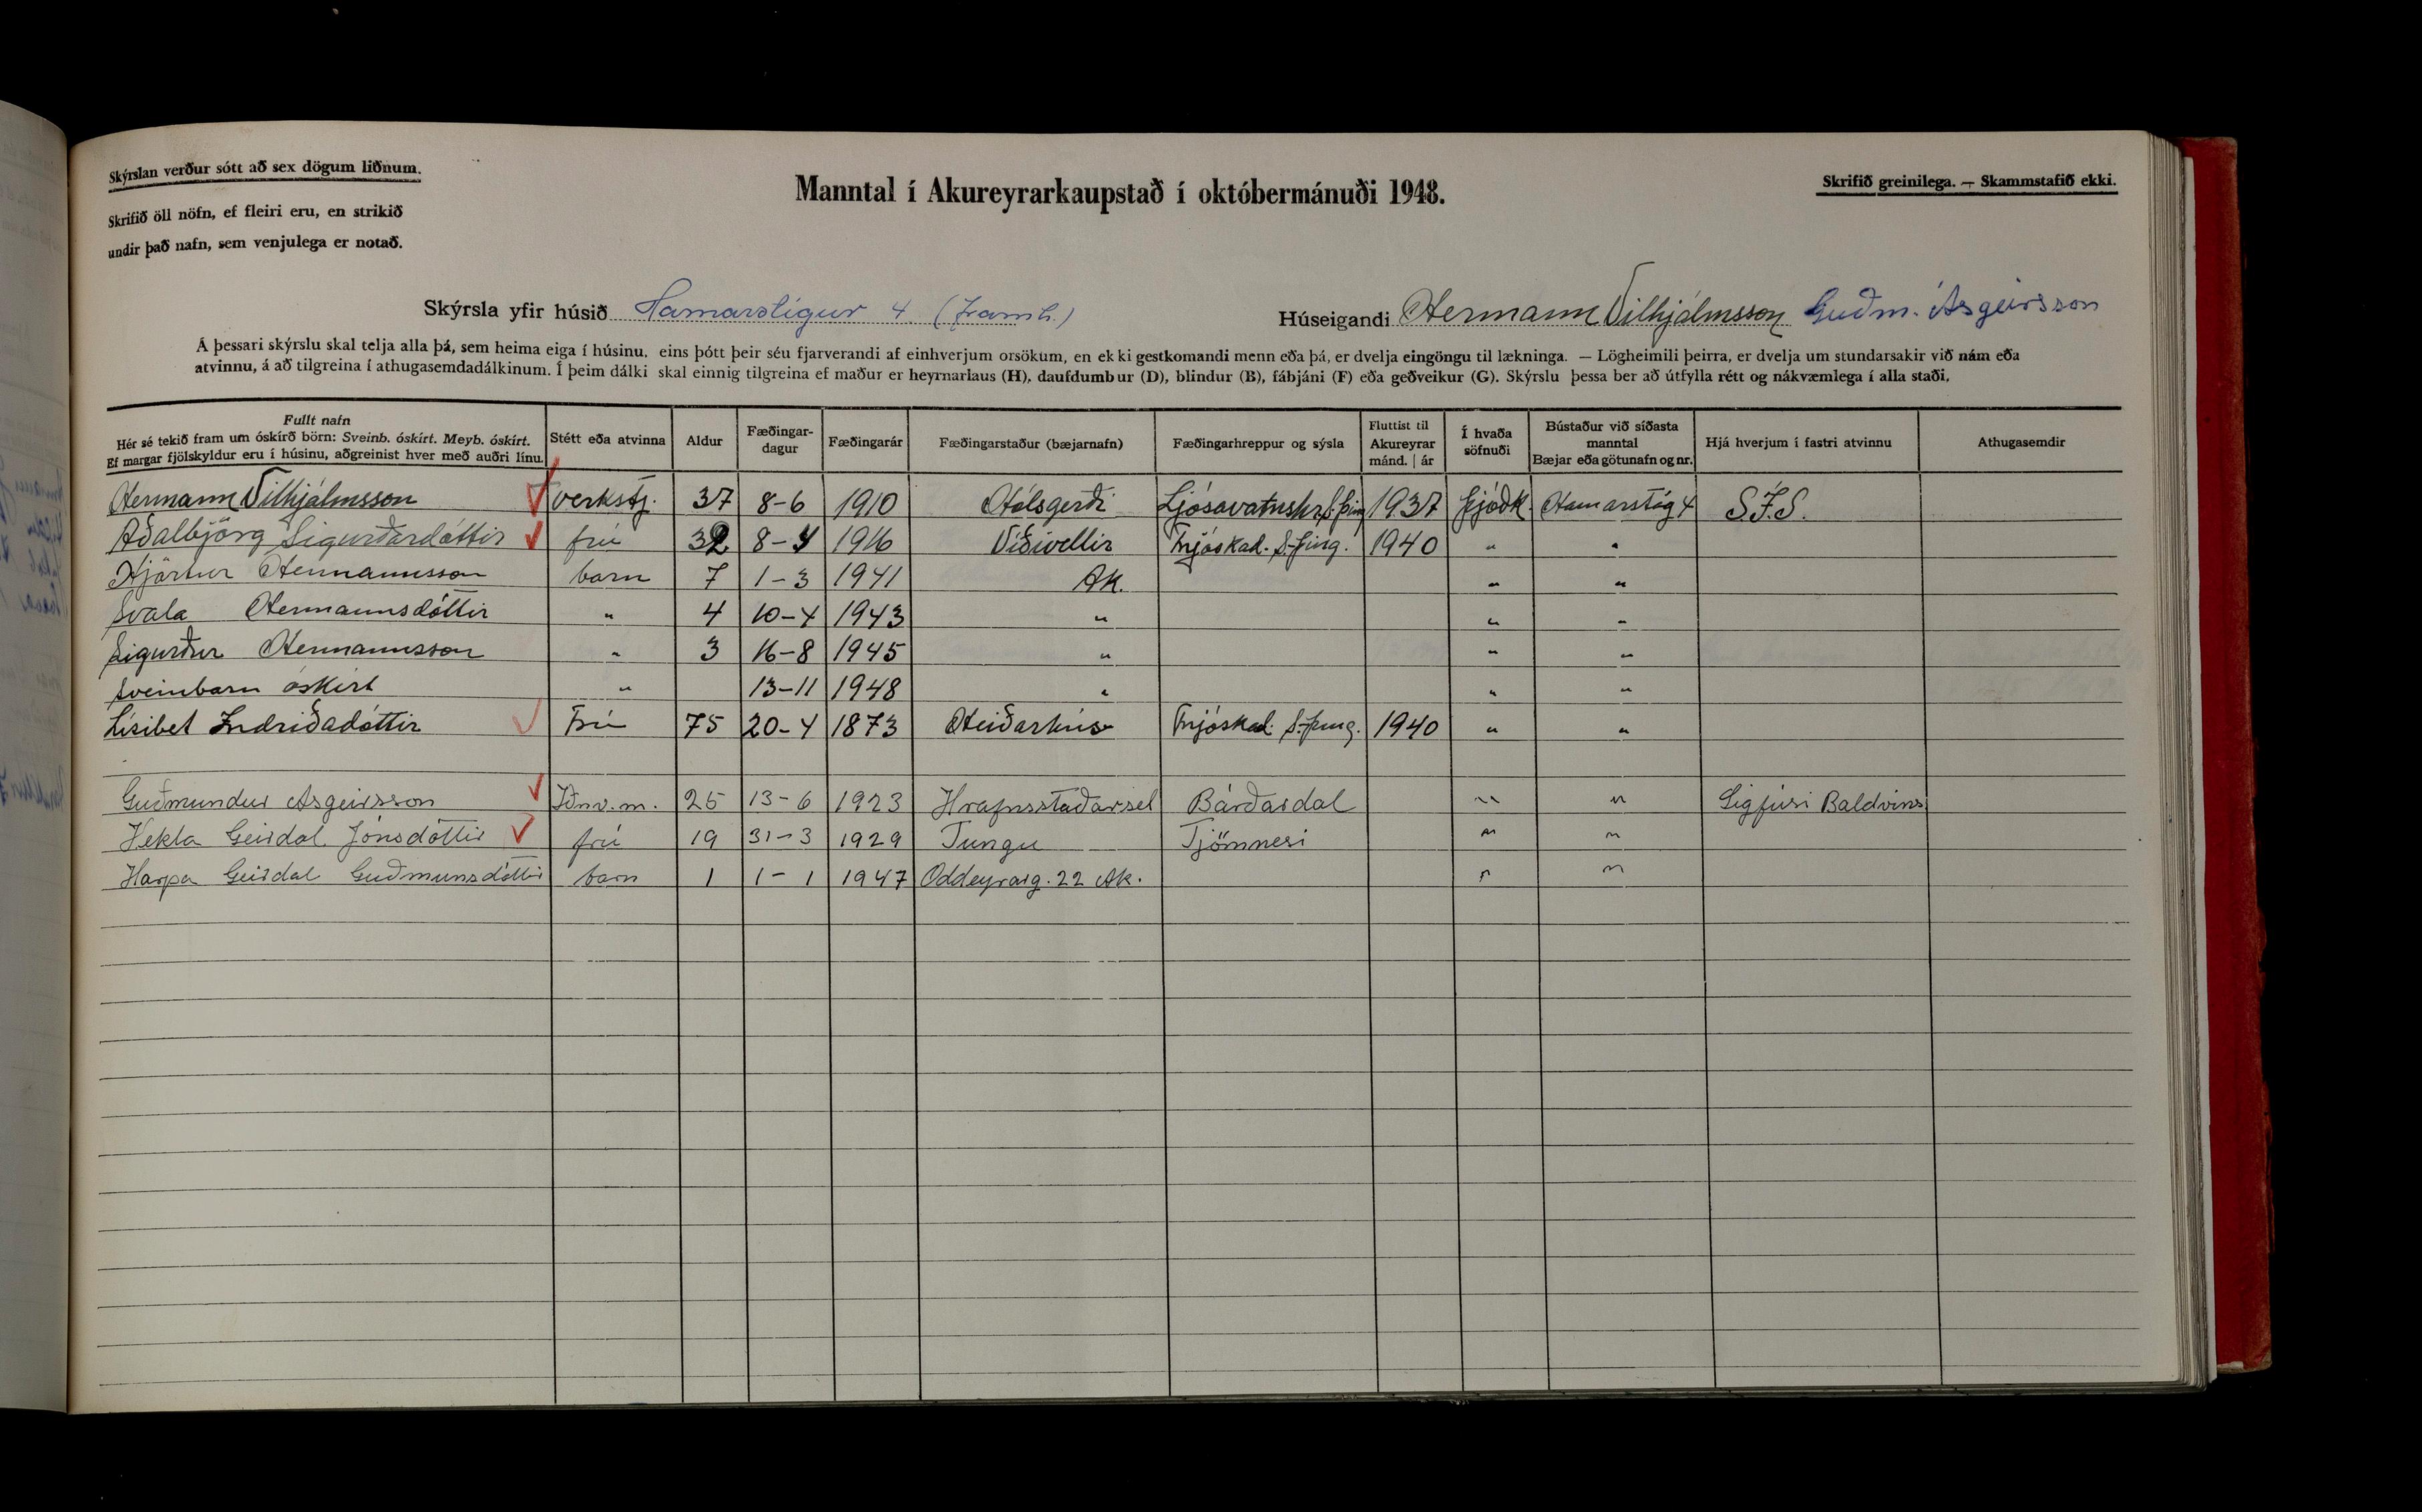 Skýrslan verður sótt að sex dögum liðnum.
Skrifið öll nöfn, ef fleiri eru, en strikið
undir það nafn, sem venjulega er notað.
Manntal í Akureyrarkaupstað í októbermánuði 1948.
Skrifið greinilega. — Skammstafið ekki.
Skýrsla yfir húsið Hamarstígur 4 (framh.) Húseigandi Hermann Vilhjálmsson Guðm. Ásgeirsson
Á þessari skýrslu skal telja alla þá, sem heima eiga í húsinu, eins þótt þeir séu fjarverandi af einhverjum orsökum, en ekki gestkomandi menn eða þá, er dvelja eingöngu til lækninga. — Lögheimili þeirra, er dvelja um stundarsakir við nám eða
atvinnu, á að tilgreina í athugasemdadálkinum. Í þeim dálki skal einnig tilgreina ef maður er heyrnarlaus (H), daufdumbur (D), blindur (B), fábjáni (F) eða geðveikur (G). Skýrslu þessa ber að útfylla rétt og nákvæmlega í alla staði.
Fullt nafn
Hér sé tekið fram um óskírð börn: Sveinb. óskírt. Meyb. óskírt.
Ef margar fjölskyldur eru í húsinu, aðgreinist hver með auðri línu.
Stétt eða atvinna
Aldur
Fæðingar-
dagur
Fæðingarár
Fæðingarstaður (bæjarnafn)
Fæðingarhreppur og sýsla
Fluttist til
Akureyrar
mánd. | ár
Í hvaða
söfnuði
Bústaður við síðasta
manntal
Bæjar eða götunafn og nr.
Hjá hverjum í fastri atvinnu
Athugasemdir
Hermann Vilhjálmsson verkstj. 37 8-6 1910 Hólsgerði Ljósavatnshr. S.þing 1937 þjóðk. Hamarstíg 4 S.Í.S.
Aðalbjörg Sigurðardóttir frú 32 8-4 1916 Víðivellir Fnjóskad. S-þing. 1940 " "
Hjörtur Hermannsson barn 7 1-3 1941 Ak. " "
Svala Hermannsdóttir " 4 10-4 1943 " " "
Sigurður Hermannsson " 3 16-8 1945 " " "
Sveinbarn óskírt " 13-11 1948 " " "
Lísibet Indriðadóttir Frú 75 20-4 1873 Heiðarhús Fnjóskad. S-þing. 1940 " "
Guðmundur Asgeirsson Iðnv.m. 25 13-6 1923 Hrafnsstaðarsel Bárðardal " " Sigfúsi Baldvins
Hekla Geirdal Jónsdóttir frú 19 31-3 1929 Tungu Tjörnnesi " "
Harpa Geirdal Guðmunsdóttir barn 1 1-1 1947 Oddeyrarg. 22 Ak. " "